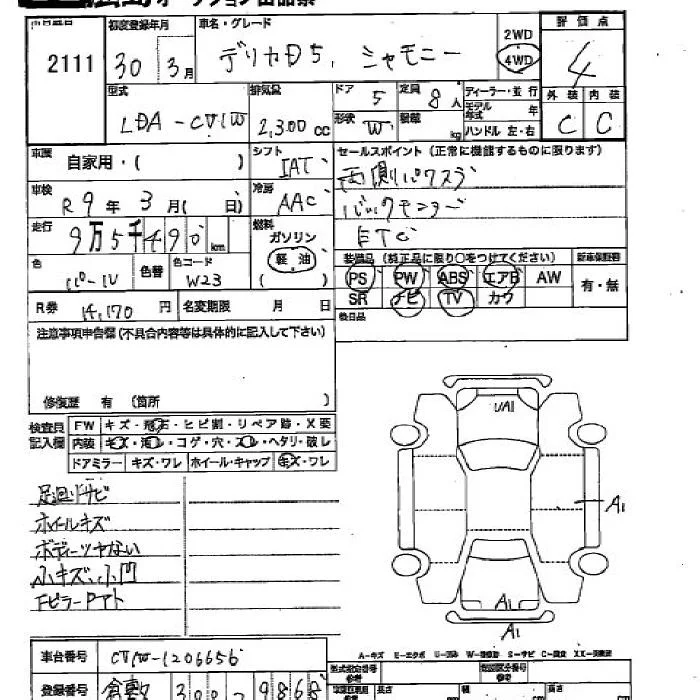 2111
初度登録年月 車名・グレード 評価点
30 3月 デリカD5, シャモニー 2WD 4WD 4
型式 排気量 ドア 5 定員 8人 ディーラー・並行 外装 内装
LDA-CV1W 2,300cc 形状 W 積載 kg モデル年式 年 C C
ハンドル 左・右
車歴 自家用・( ) シフト IAT セールスポイント (正常に機能するものに限ります)
両側パワスラ
車検 R9年 3月( 日) 冷房 AAC バックモニター
走行 9万5千490km 燃料 ガソリン 軽油 ( ) ETC
装備品(純正品に限り○をつけてください) 新車保証書
色 パール 色替 色コード W23 PS PW ABS エアB AW 有・無
SR ナビ TV カワ
R券 14,170円 名変期限 月 日 後日品
注意事項申告欄(不具合内容等は具体的に記入して下さい)
修復歴 有 (箇所 )
検査員記入欄 FW キズ・飛石・ヒビ割・リペア跡・X要
内装 キズ・汚れ・コゲ・穴・スレ・ヘタリ・破レ
ドアミラー キズ・ワレ ホイール・キャップ キズ・ワレ
足廻りサビ
ホイールキズ
ボディーツヤない
小キズ、小凹
UA1
A1
A1
A1
車台番号 CV1W-1206656
登録番号 倉敷 9868
A-キズ
型式指定番号 類別区分番号
長さ 幅 高さ